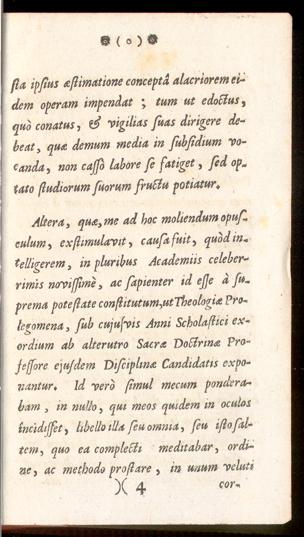 ❁ ( o ) ❁
ſta ipſius æſtimatione conceptâ alacriorem ei-
dem operam impendat ; tum ut edoctus,
quò conatus, & vigilias ſuas dirigere de-
beat, quæ demum media in ſubſidium vo-
canda, non caſſò labore ſe fatiget, ſed op-
tato ſtudiorum ſuorum fructu potiatur.
Altera, quæ, me ad hoc moliendum opuſ-
culum, exſtimulavit, cauſa fuit, quòd in-
telligerem, in pluribus Academiis celeber-
rimis noviſſimè, ac ſapienter id eſſe à ſu-
prema poteſtate conſtitutum, ut Theologiæ Pro-
legomena, ſub cujuſvis Anni Scholaſtici ex-
ordium ab alterutro Sacræ Doctrinæ Pro-
feſſore ejuſdem Diſciplinæ Candidatis expo-
nantur. Id verò ſimul mecum pondera-
bam, in nullo, qui meos quidem in oculos
incidiſſet, libello illa ſeu omnia, ſeu iſto ſal-
tem, quo ea complecti meditabar, ordi-
ne, ac methodo proſtare, in unum veluti
)( 4
cor-